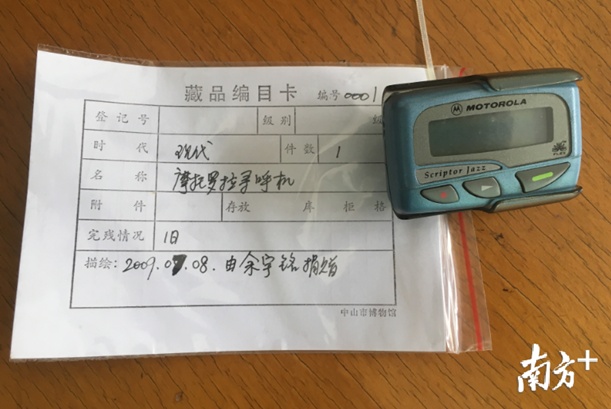 藏品编目卡 编号0001
登记号 级别 级
时代 现代 件数 1
名称 摩托罗拉寻呼机
附件 存放 库 柜 格
完残情况 旧
描绘: 2009.07.08. 由余宇铭捐赠
中山市博物馆
MOTOROLA
Scriptor Jazz
南方+